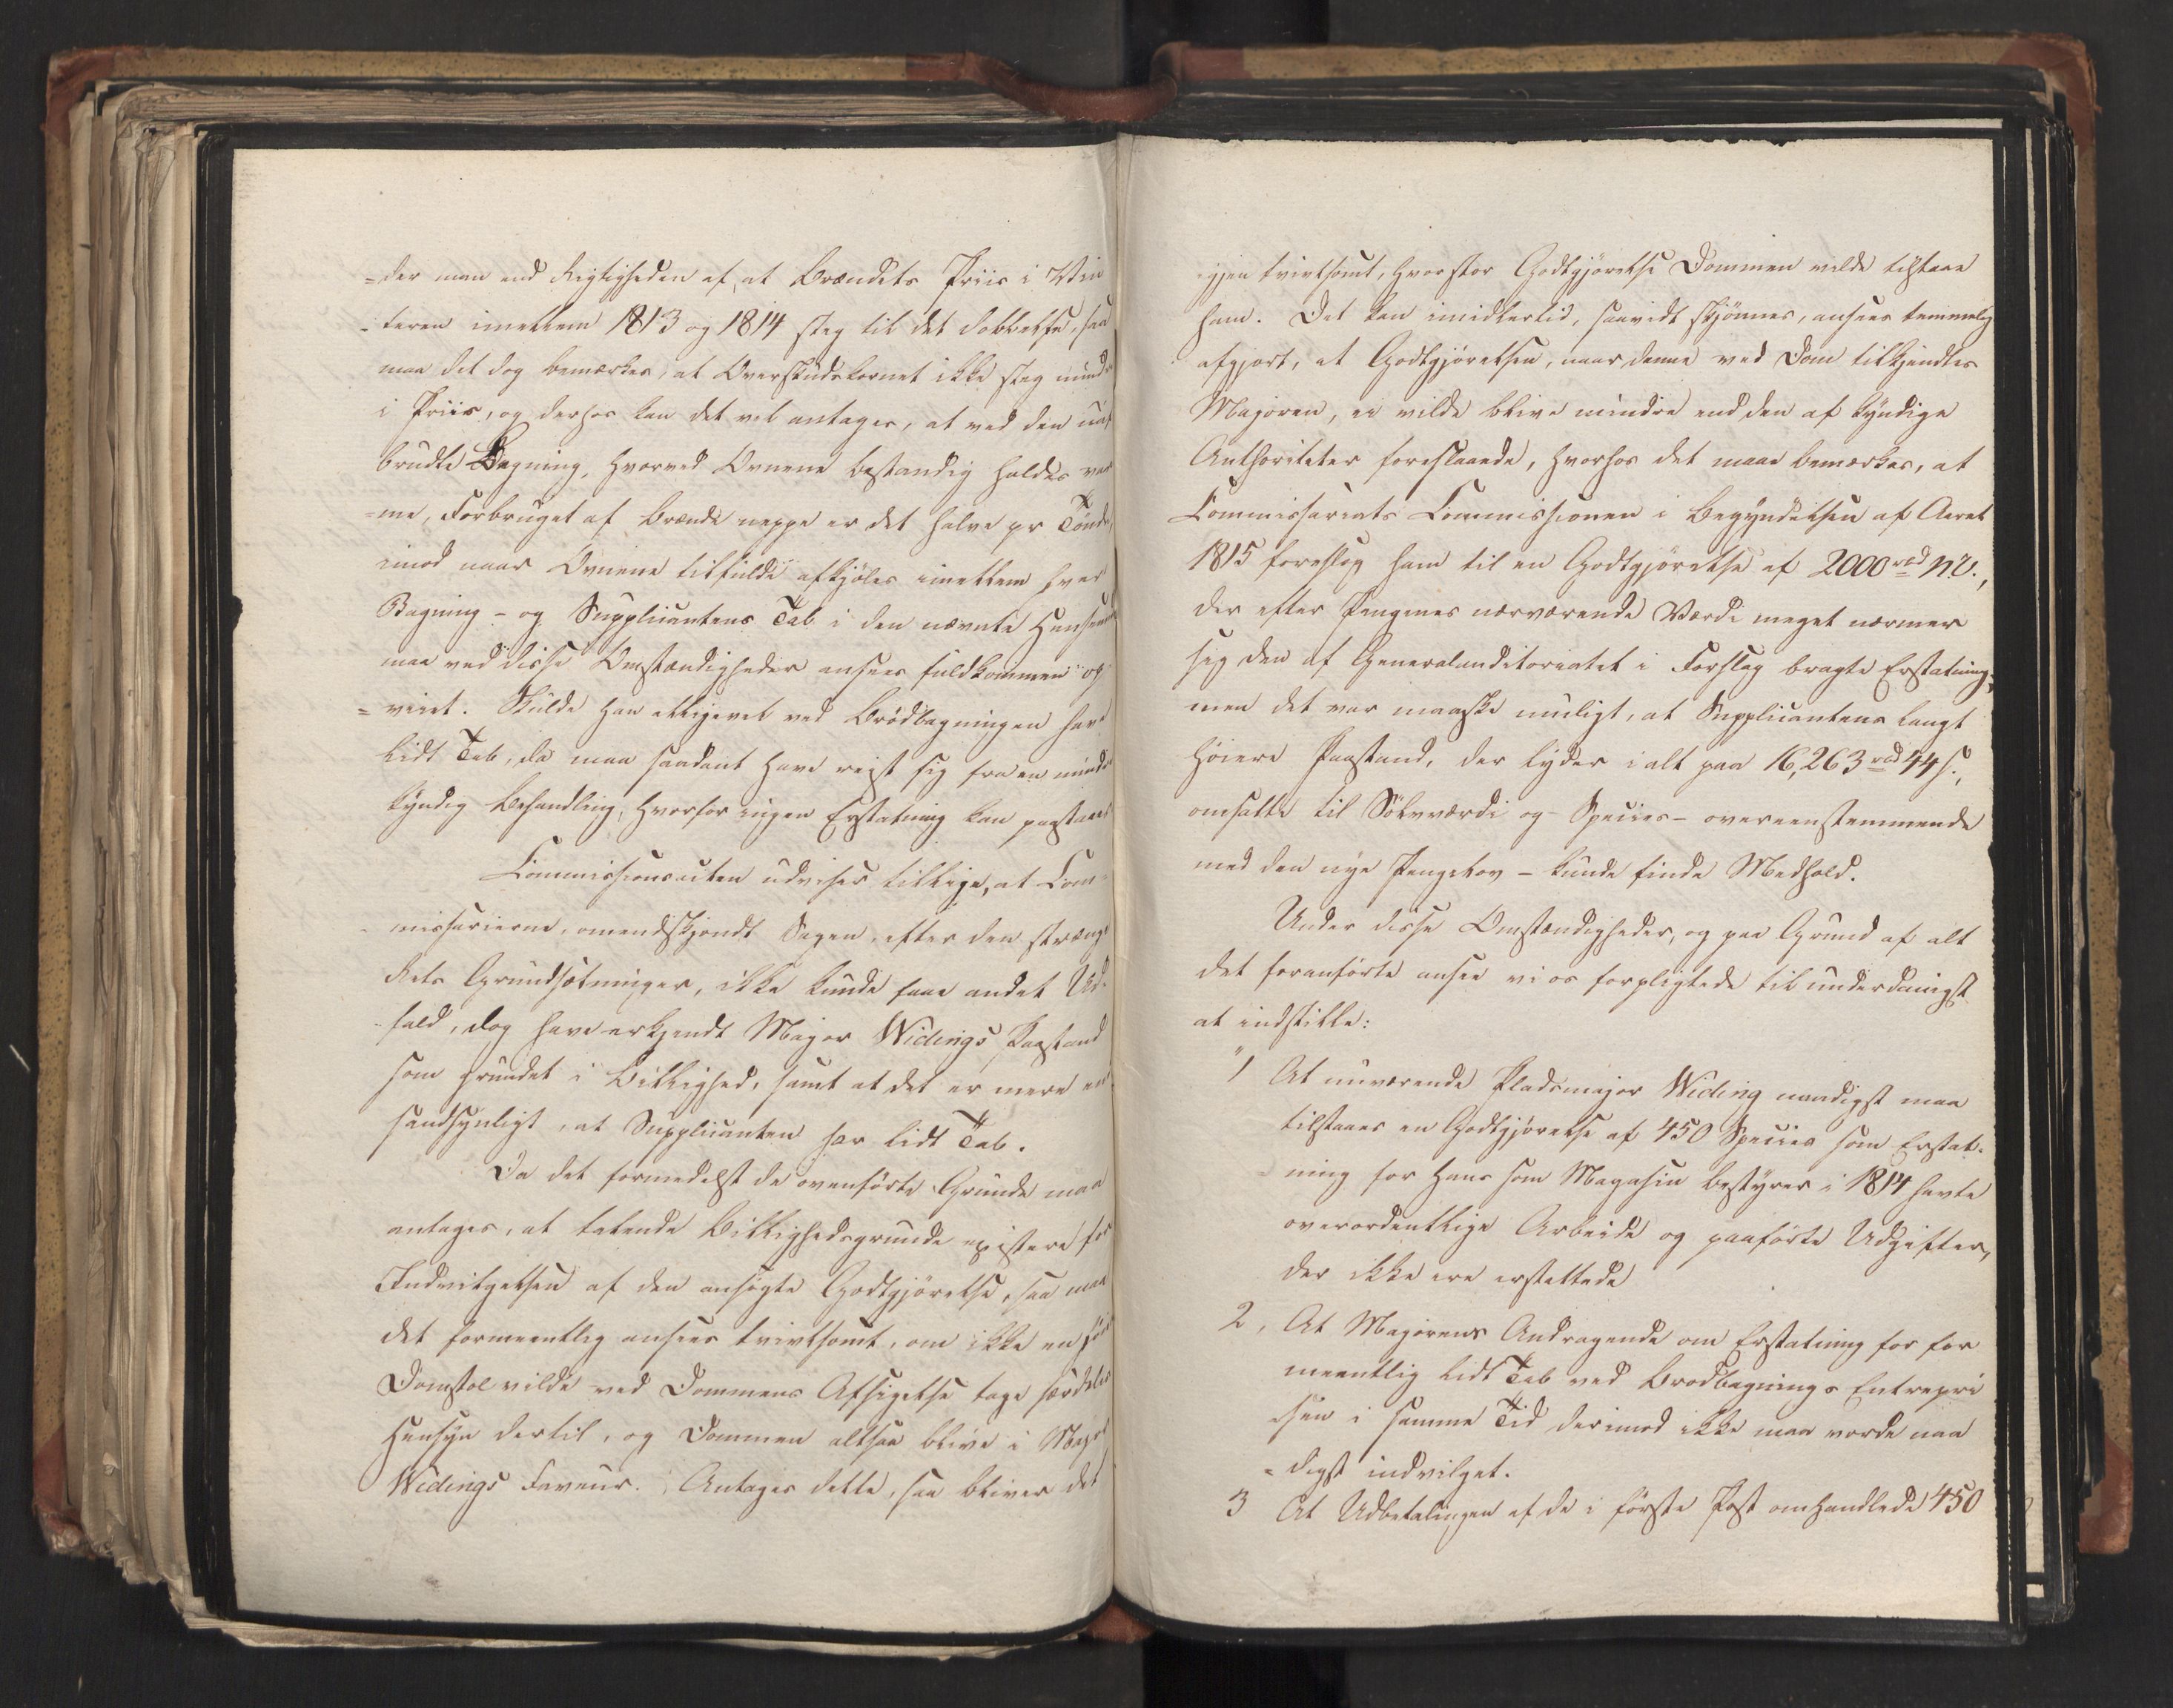 =der man end Rigtigheden af, at Brændets Priis i Vin
=teren imellem 1813 og 1814 steg til det dobbelte, saa
maa det dog bemærkes, at Overskudskornet ikke steg mindre
i Priis, og derhos kan det vel antages, at ved den uaf
brudte Bagning, hvorved Ovnene bestandig holdes var
=me, Forbruget af Brænde neppe er det halve pr Tönde,
imod naar Ovnene tilfulde afkjöles imellem hver
Bagning - og Supplicantens Tab i den nævnte Henseende
maa ved disse Omstændigheder ansees fuldkommen op
=veiet. Skulde han alligevel ved Brödbagningen have
lidt Tab, da maa saadant have reist sig fra en mindre
kyndig Behandling, hvorfor ingen Erstatning kan paastaaes
Commissionsacten udviser tillige, at Com-
missarierne, omendskjöndt Sagen, efter den strænge
Rets Grundsætninger, ikke kunde faae andet Ud-
fald, dog have erkjendt Major Widings Paastand
som grundet i Billighed, samt at det er mere end
sandsynligt, at Supplicanten har lidt Tab.
Da det formedelst de ovenförte Grunde maa
antages, at talende Billighedsgrunde existere for
Indvilgelsen af den ansögte Godtgjörelse, saa maa
det formeentlig ansees tvivlsomt, om ikke en
Domstol vilde ved Dommens Afsigelse tage særdeles
Hensyn dertil, og Dommen altsaa blive i Major
Widings Faveur. Antages dette, saa bliver det
igjen tvivlsomt, hvor stor Godtgjörelse Dommen vilde tilstaae
ham. Det kan imidlertid, saavidt skjönnes, ansees temmelig
afgjort, at Godtgjörelsen, naar denne ved Dom tilkjendtes
Majoren, ei vilde blive mindre end den af kyndige
Authoriteter foreslaaede, hvorhos det maae bemærkes, at
Commissariats Commissionen i Begyndelsen af Aaret
1815 foreslog ham til en Godtgjörelse af 2000 rbd N.V.,
der efter Pengenes nærværende Værdi meget nærmer
sig den af Generalauditoriatet i Forslag bragte Erstatning,
men det var maaske muligt, at Supplicantens langt
höiere Paastand, der lyder i alt paa 16,263 rbd 44 s.,
omsatte til Sölvværdi og Species - overeenstemmende
med den nye Pengelov - kunde finde Medhold.
Under disse Omstændigheder, og paa Grund af alt
det foranförte ansee vi os forpligtede til underdanigst
at indstille:
1 At nuværende Pladsmajor Widing naadigst maa
tilstaaes en Godtgjörelse af 450 Species som Erstat-
ning for hans som Magasin Bestyrer i 1814 havte
overordentlige Arbeide og paaförte Udgifter,
der ikke ere erstattede
2, At Majorens Andragende om Erstatning for for
meentlig lidt Tab ved Brodbagnings Entrepri
sen i samme Tid derimod ikke maa vorde naa
=digst indvilget.
3 At Udbetalingen af de i förste Post omhandlede 450